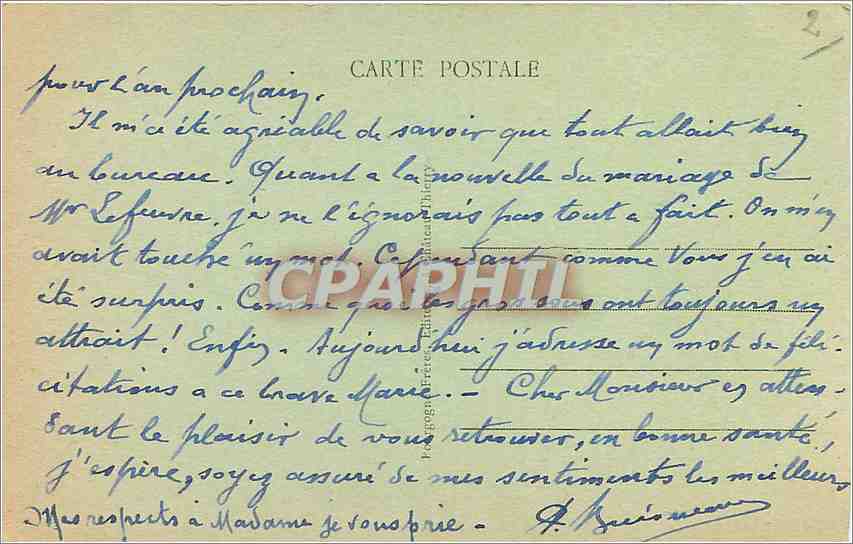 2
CARTE POSTALE
pour l'an prochain.
Il m'a été agréable de savoir que tout allait bien
au bureau. Quant a la nouvelle du mariage de
Mr Lefeuvre, je ne l'ignorais pas tout a fait. On m'en
avait touché un mot. Cependant comme Vous j'en ai
été surpris. Comme quoi les gros sous ont toujours un
attrait ! Enfin. Aujourd'hui j'adresse un mot de féli-
citations a ce brave Marié. — Cher Monsieur en atten-
dant le plaisir de vous retrouver, en bonne santé,
j'espère, soyez assuré de mes sentiments les meilleurs
Mes respects à Madame je vous prie -
Bourgogne Frères, Château-Thierry
CPAPHIL